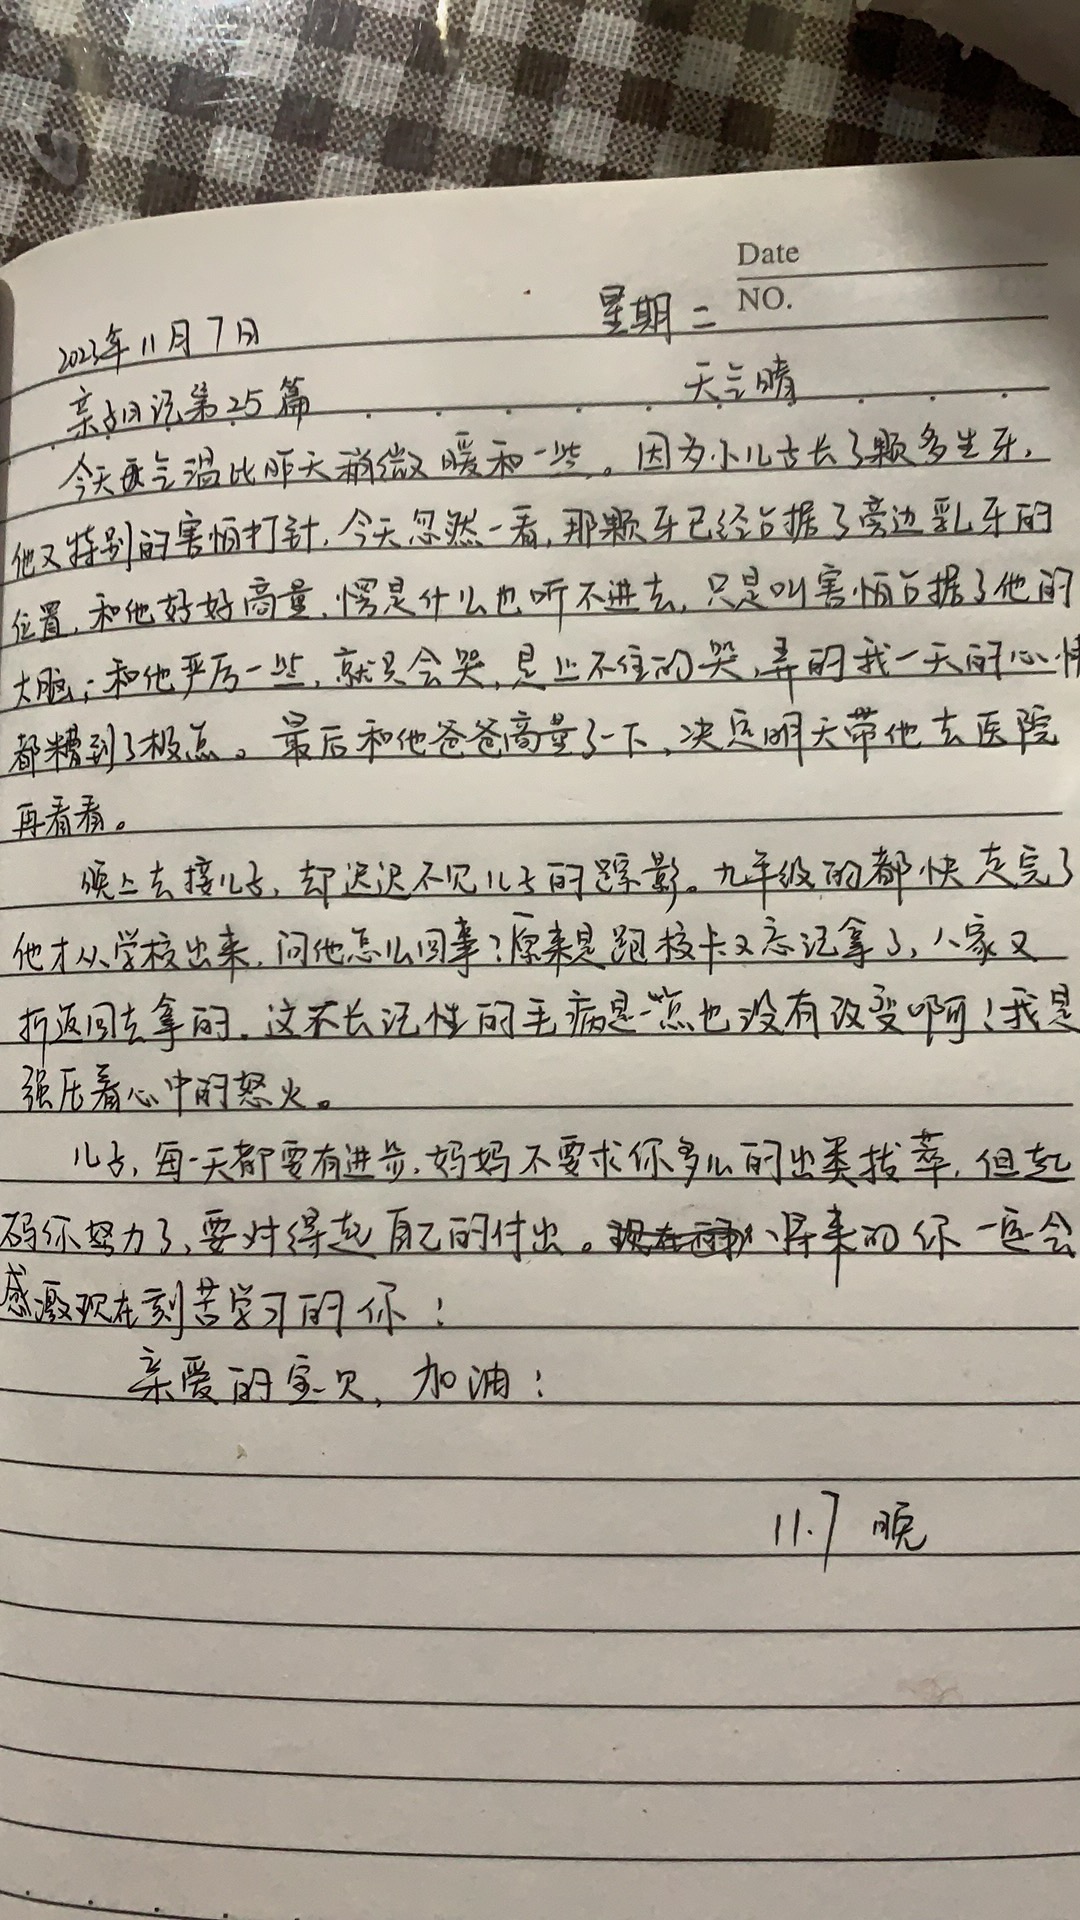 Date
NO.
2023年11月7日 星期二
亲子日记第25篇 天气晴
今天气温比昨天稍微暖和一些。因为小儿子长了颗多生牙,
他又特别的害怕打针,今天忽然一看,那颗牙已经占据了旁边乳牙的
位置,和他好好商量,愣是什么也听不进去,只是叫害怕占据了他的
大脑;和他严厉一些,就只会哭,是止不住的哭,弄的我一天的心情
都糟到了极点。最后和他爸爸商量了一下,决定明天带他去医院
再看看。
晚上去接儿子,却迟迟不见儿子的踪影。九年级的都快走完了
他才从学校出来,问他怎么回事?原来是跑校卡又忘记拿了,人家又
折返回去拿的,这不长记性的毛病是一点也没有改变啊!我是
强压着心中的怒火。
儿子,每一天都要有进步,妈妈不要求你多么的出类拔萃,但起
码你努力了,要对得起自己的付出。将来的你一定会
感激现在刻苦学习的你!
亲爱的宝贝,加油!
11.7 晚